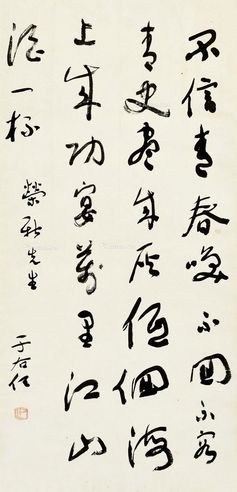 不信青春喚不回不容
青史盡成灰低佪海
上成功宴萬里江山
酒一杯
榮 先生
于右任